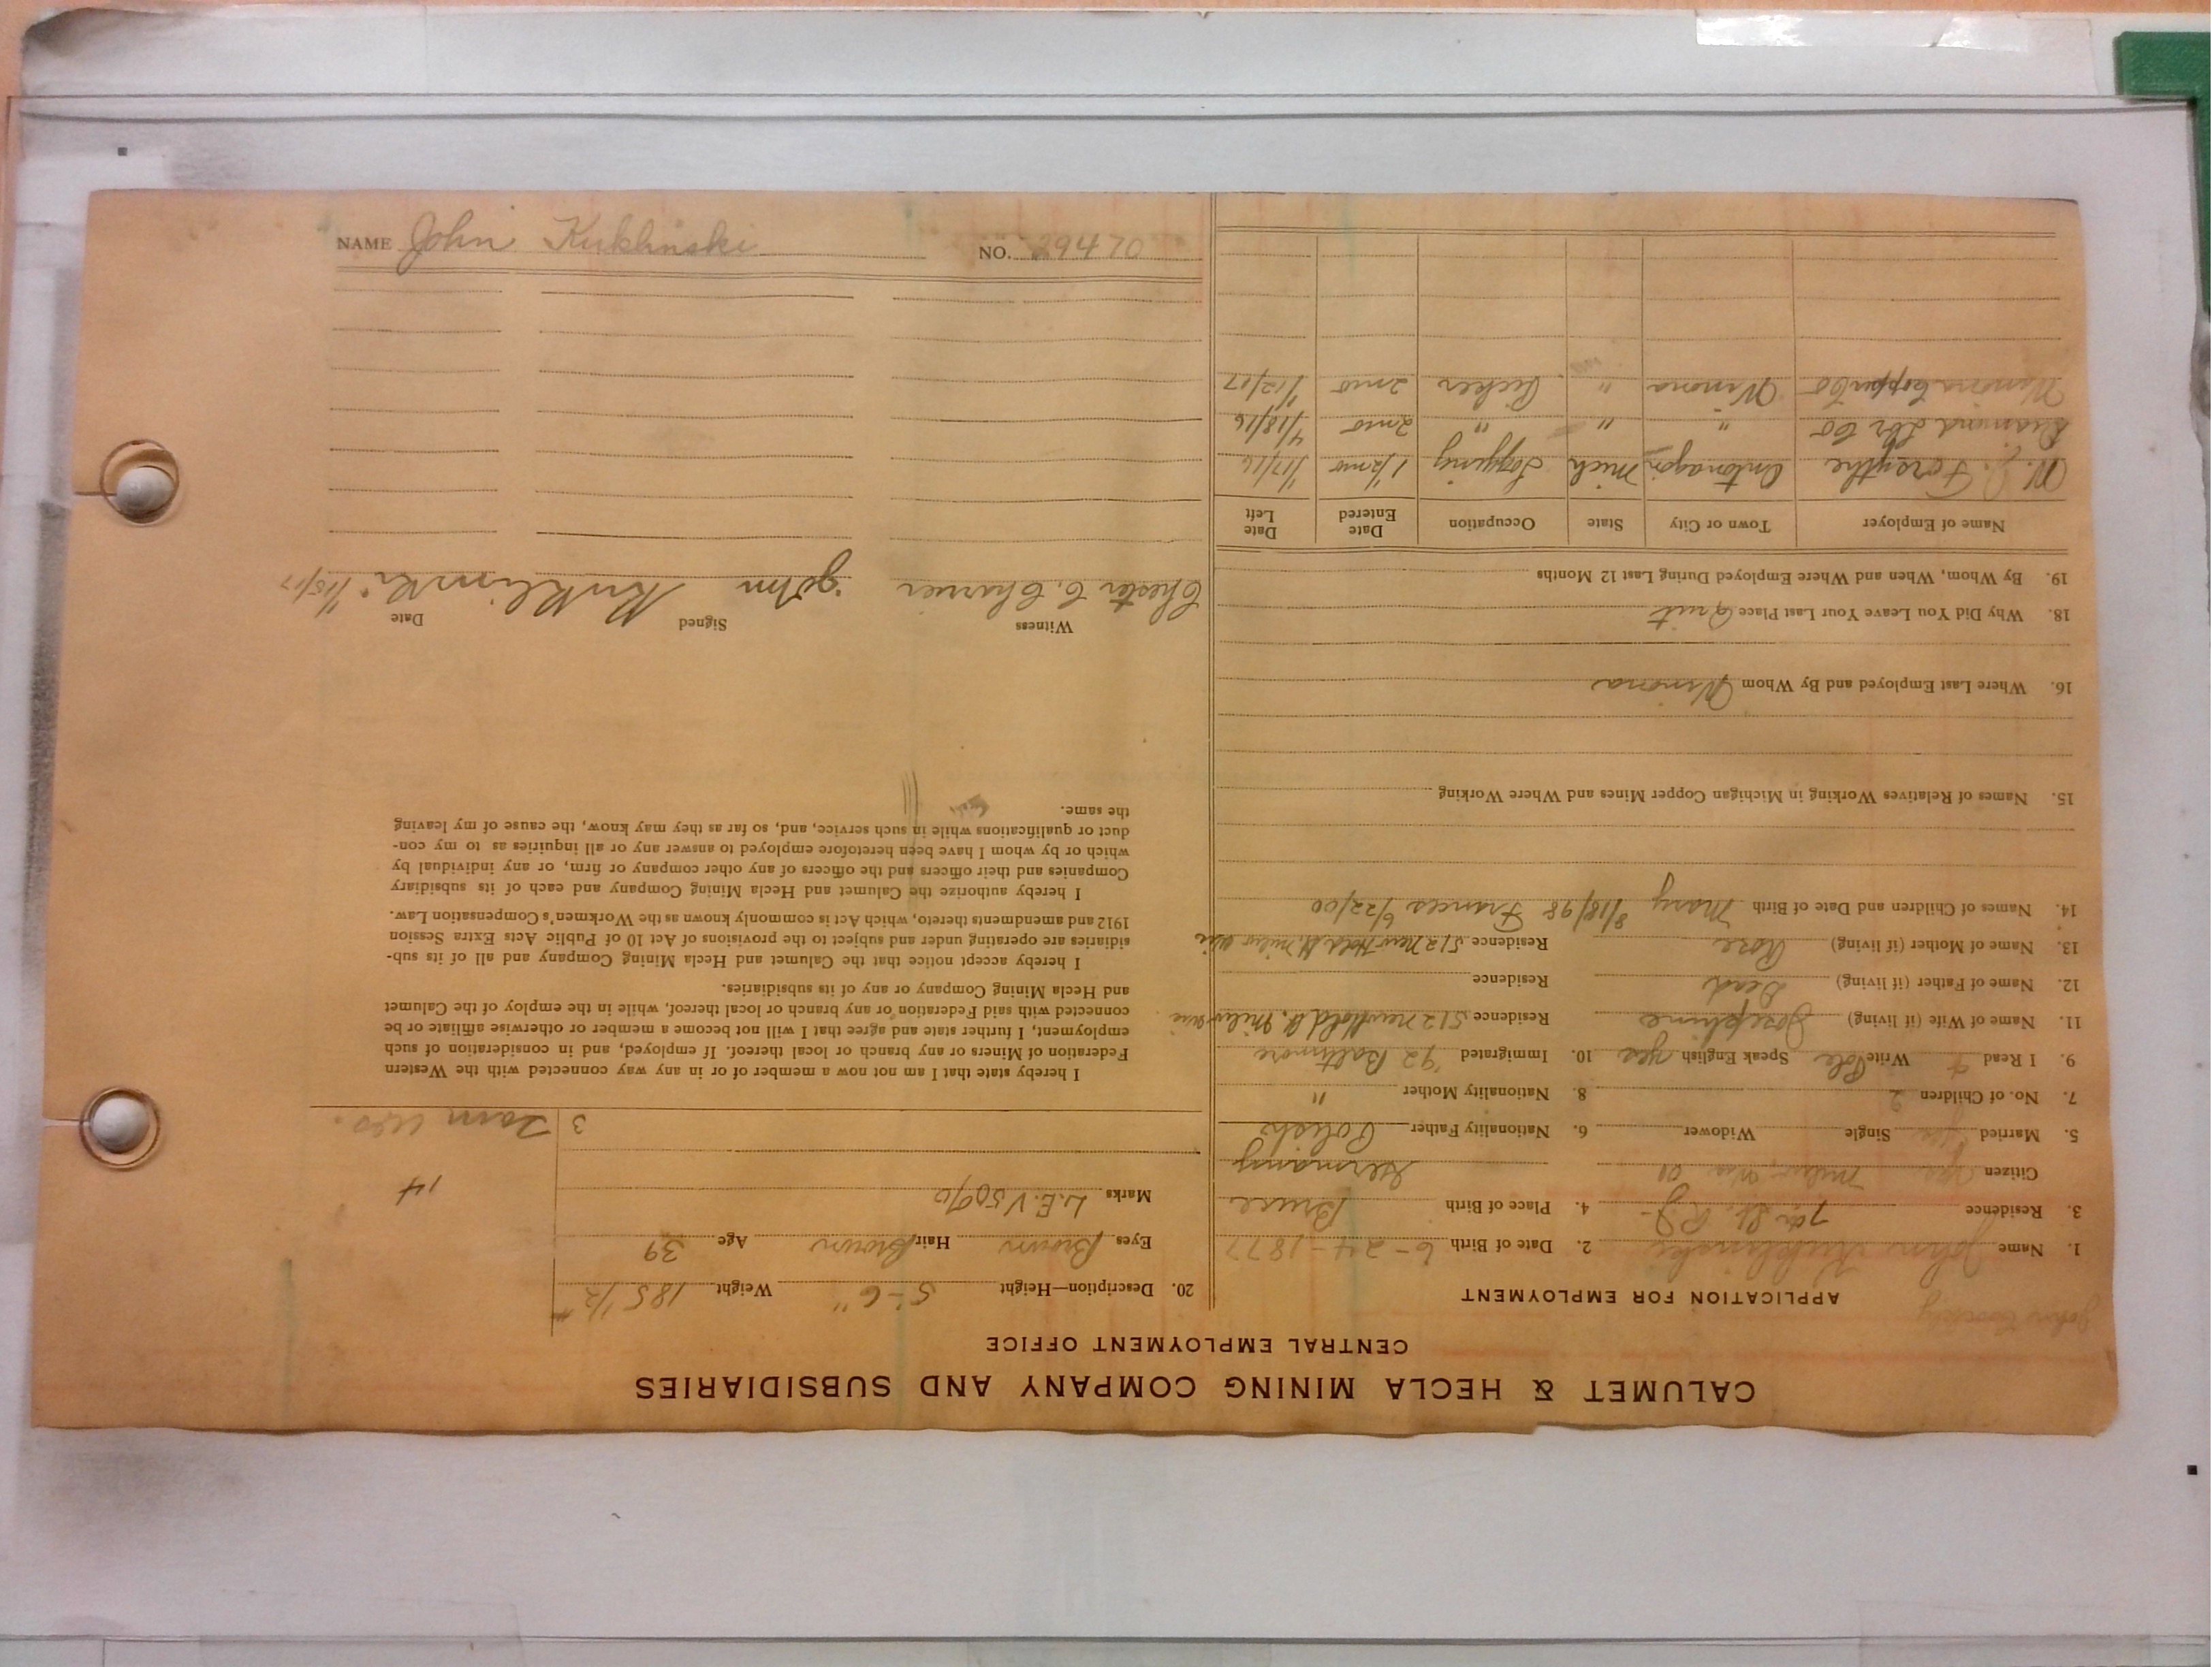 CALUMET & HECLA MINING COMPANY AND SUBSIDIARIES
CENTRAL EMPLOYMENT OFFICE
APPLICATION FOR EMPLOYMENT
1. Name John Kuklinski 2. Date of Birth 6-24-1877
3. Residence 7 4. Place of Birth
Citizen yes 01 Germany
5. Married yes Single Widower 6. Nationality Father Polish
7. No. of Children 2 8. Nationality Mother "
9. I Read & Write Pole Speak English yes 10. Immigrated '92 Baltimore
11. Name of Wife (if living) Josephine Residence 512
12. Name of Father (if living) Dead Residence
13. Name of Mother (if living) Rose Residence 512
14. Names of Children and Date of Birth Mary 8/18/98 Frances 6/22/00
15. Names of Relatives Working in Michigan Copper Mines and Where Working
16. Where Last Employed and By Whom Winona
18. Why Did You Leave Your Last Place Quit
19. By Whom, When and Where Employed During Last 12 Months
Name of Employer Town or City State Occupation Date Entered Date Left
Forsythe Ontonagon Mich Logging 1/2 mo 1/17/16
Diamond Lbr Co " " " 2 mo 4/18/16
Winona Copper Co Winona " Picker 2 mo 1/12/17
20. Description—Height 5'-6" Weight 185 1/2 #
Eyes Brown Hair Brown Age 39
Marks L.E.V 50%
14
3
I hereby state that I am not now a member of or in any way connected with the Western
Federation of Miners or any branch or local thereof. If employed, and in consideration of such
employment, I further state and agree that I will not become a member or otherwise affiliate or be
connected with said Federation or any branch or local thereof, while in the employ of the Calumet
and Hecla Mining Company or any of its subsidiaries.
I hereby accept notice that the Calumet and Hecla Mining Company and all of its sub-
sidiaries are operating under and subject to the provisions of Act 10 of Public Acts Extra Session
1912 and amendments thereto, which Act is commonly known as the Workmen's Compensation Law.
I hereby authorize the Calumet and Hecla Mining Company and each of its subsidiary
Companies and their officers and the officers of any other company or firm, or any individual by
which or by whom I have been heretofore employed to answer any or all inquiries as to my con-
duct or qualifications while in such service, and, so far as they may know, the cause of my leaving
the same.
Witness Signed Date
Chester C. John Kuklinski 1/15/17
NAME John Kuklinski NO. 29470